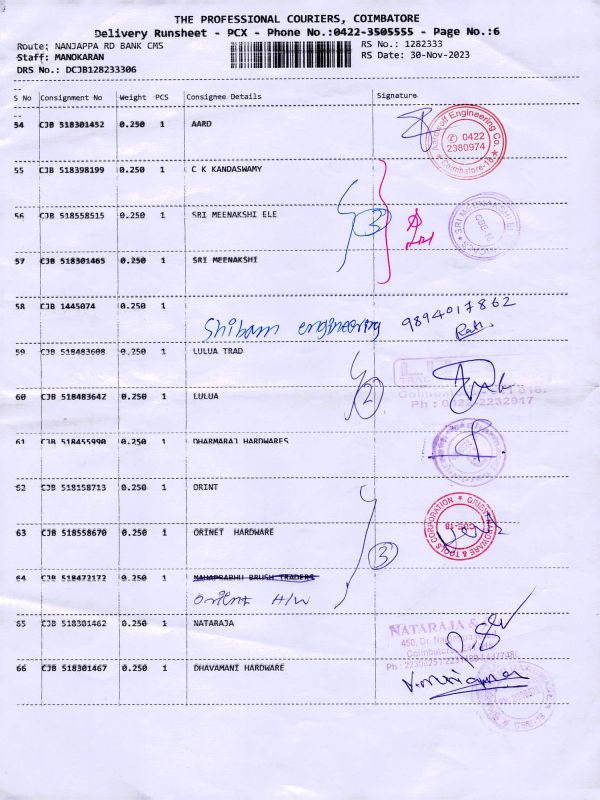 THE PROFESSIONAL COURIERS, COIMBATORE
Delivery Runsheet - PCX - Phone No.:0422-3505555 - Page No.:6
Route: NANJAPPA RD BANK CMS RS No.: 1282333
Staff: MANOKARAN RS Date: 30-Nov-2023
DRS No.: DCJB128233306
S No Consignment No Weight PCS Consignee Details Signature
54 CJB 518301452 0.250 1 AARD
Engineering Co.
0422
2380974
Coimbatore-18
55 CJB 518398199 0.250 1 C K KANDASWAMY
56 CJB 518558515 0.250 1 SRI MEENAKSHI ELE
3
CBE-18
57 CJB 518301465 0.250 1 SRI MEENAKSHI
58 CJB 1445074 0.250 1
Shibam engineering 9894017862
59 CJB 518483608 0.250 1 LULUA TRAD
60 CJB 518483642 0.250 1 LULUA
2
Ph : 0422-2232917
61 CJB 518455990 0.250 1 DHARMARAJ HARDWARES
62 CJB 518158713 0.250 1 ORINT
HARDWARE & TOOLS CORPORATION
CBE-18
63 CJB 518558670 0.250 1 ORINET HARDWARE
3
64 CJB 518472172 0.250 1 MAHAPRABHU BRUSH TRADERS
Orient H/W
65 CJB 518301462 0.250 1 NATARAJA
NATARAJA &
450, Dr.
Coimbatore
66 CJB 518301467 0.250 1 DHAVAMANI HARDWARE